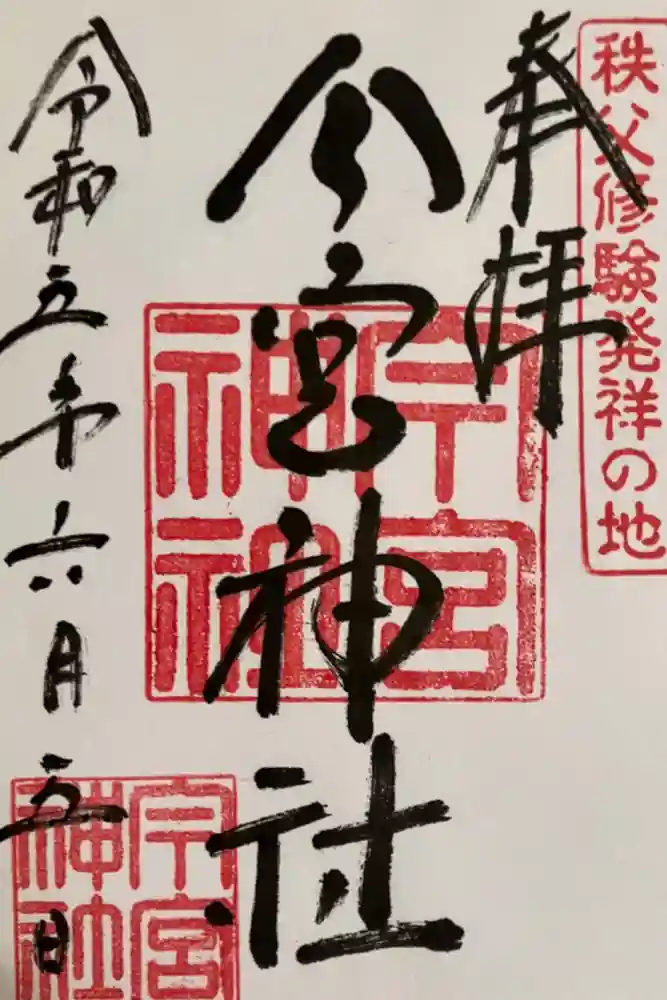 秩父修験発祥の地
奉拝
今宮神社
今宮
神社
令和五年六月五日
今宮
神社